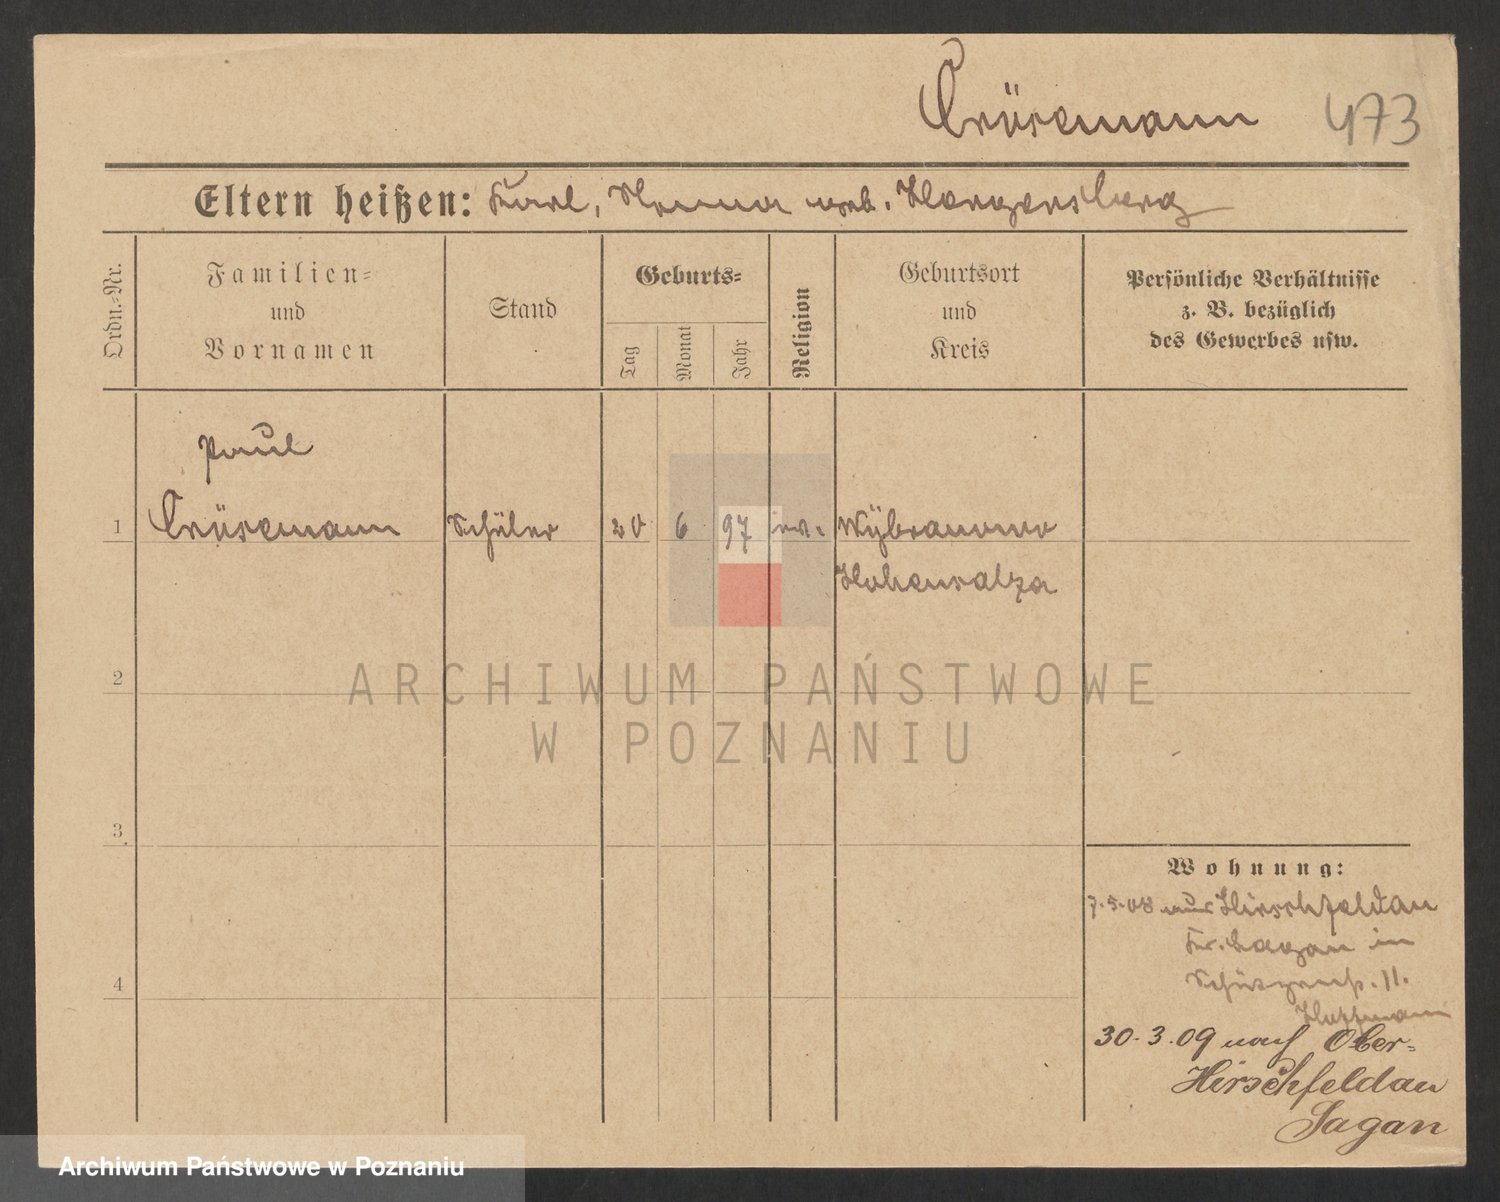 Crüsemann
473
Eltern heißen: Karl, Hanna geb.
Ordn.-Nr.
Familien-
und
Vornamen
Stand
Geburts-
Tag
Monat
Jahr
Religion
Geburtsort
und
Kreis
Persönliche Verhältnisse
z. B. bezüglich
des Gewerbes usw.
Paul
1 Crüsemann Schüler 20 6 97 ev. Wybranowo
Hohensalza
2
ARCHIWUM PAŃSTWOWE
W POZNANIU
3
Wohnung:
7.5.08 aus Hirschfeldau
Kr. Sagan in
Schützenstr. 11.
Hoffmann
4
30.3.09 nach Ober-
Hirschfeldau
Sagan
Archiwum Państwowe w Poznaniu